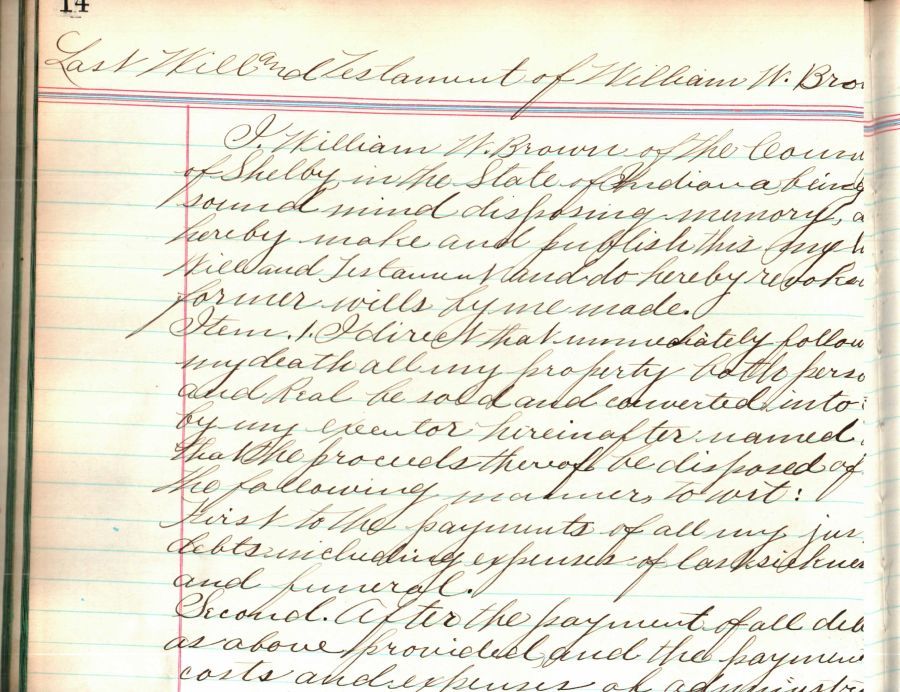 14
Last Will and Testament of William W. Bro
I, William W. Brown of the Coun
of Shelby in the State of Indiana, being
sound mind disposing memory, a
hereby make and publish this my
Will and Testament and do hereby revoke
former wills by me made.
Item. 1. I direct that immediately follow
my death all my property both perso
and Real be sold and converted into
by my executor hereinafter named
that the proceeds thereof be disposed of
the following manner, to wit:
First to the payments of all my jus
debts including expenses of last sicknes
and funeral.
Second. After the payment of all deb
as above provided and the paymen
costs and expenses of administra